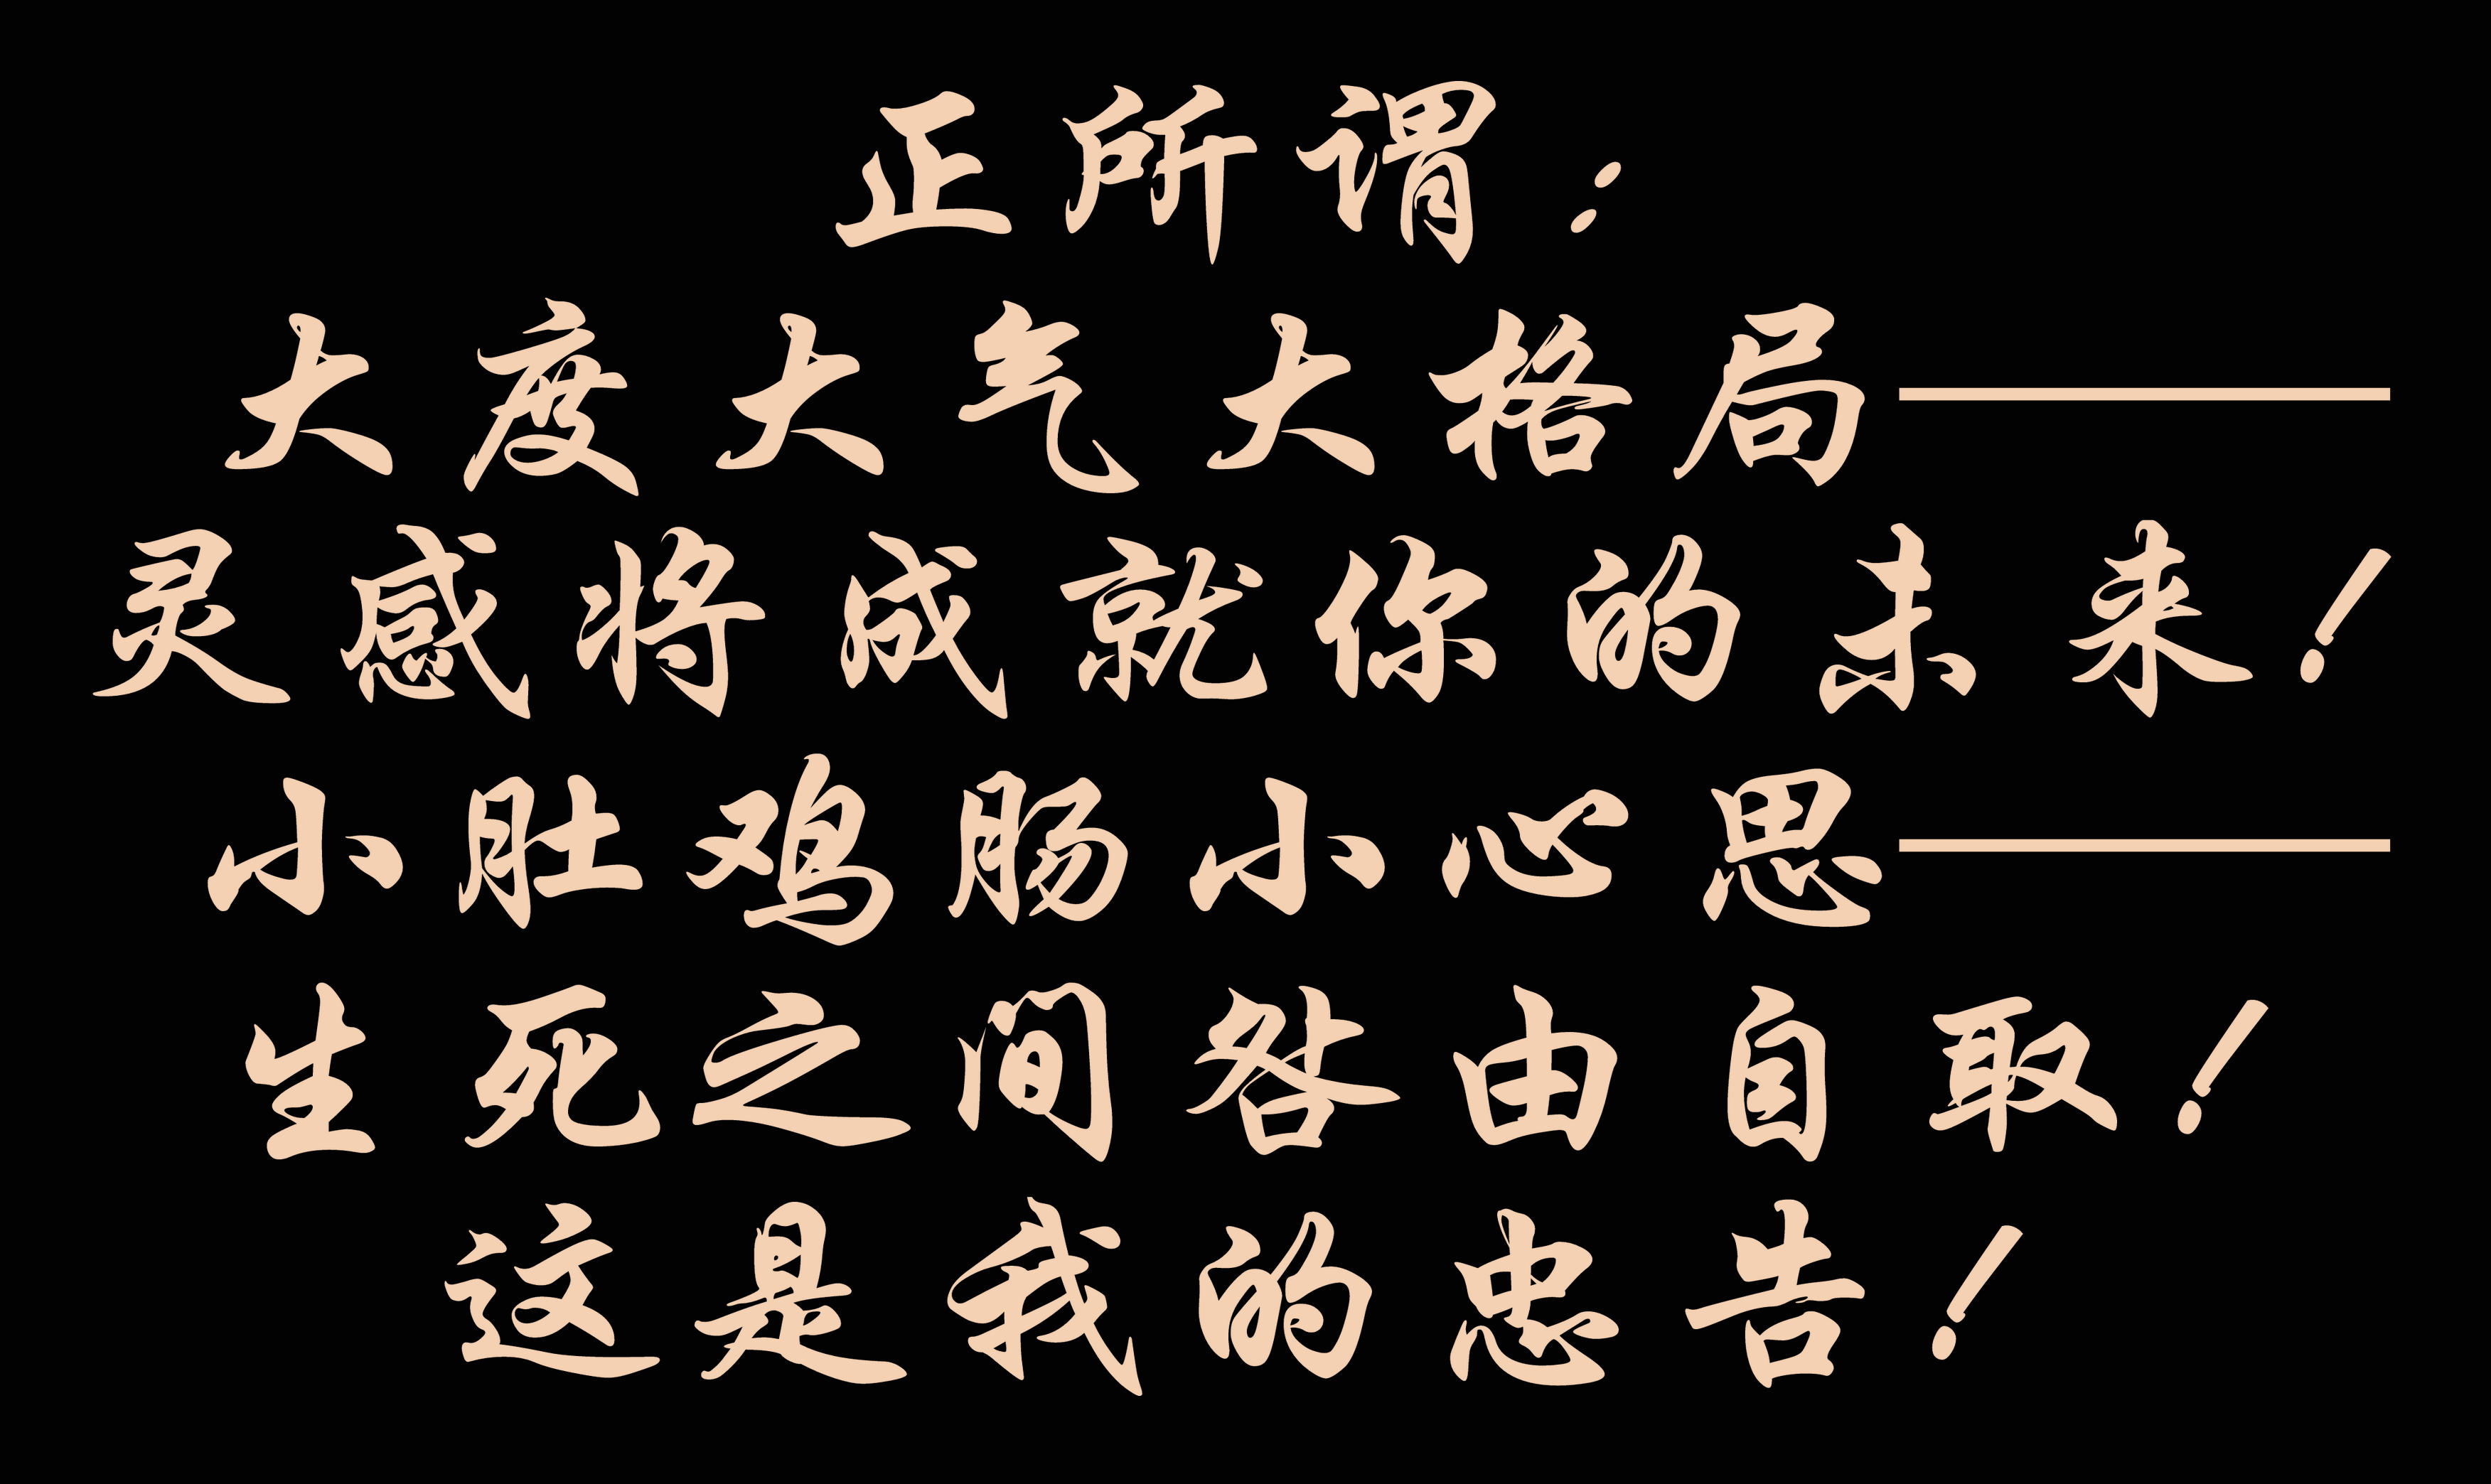 正所谓：
大度大气大格局——
灵感将成就你的未来！
小肚鸡肠小心思——
生死之间咎由自取！
这是我的忠告！